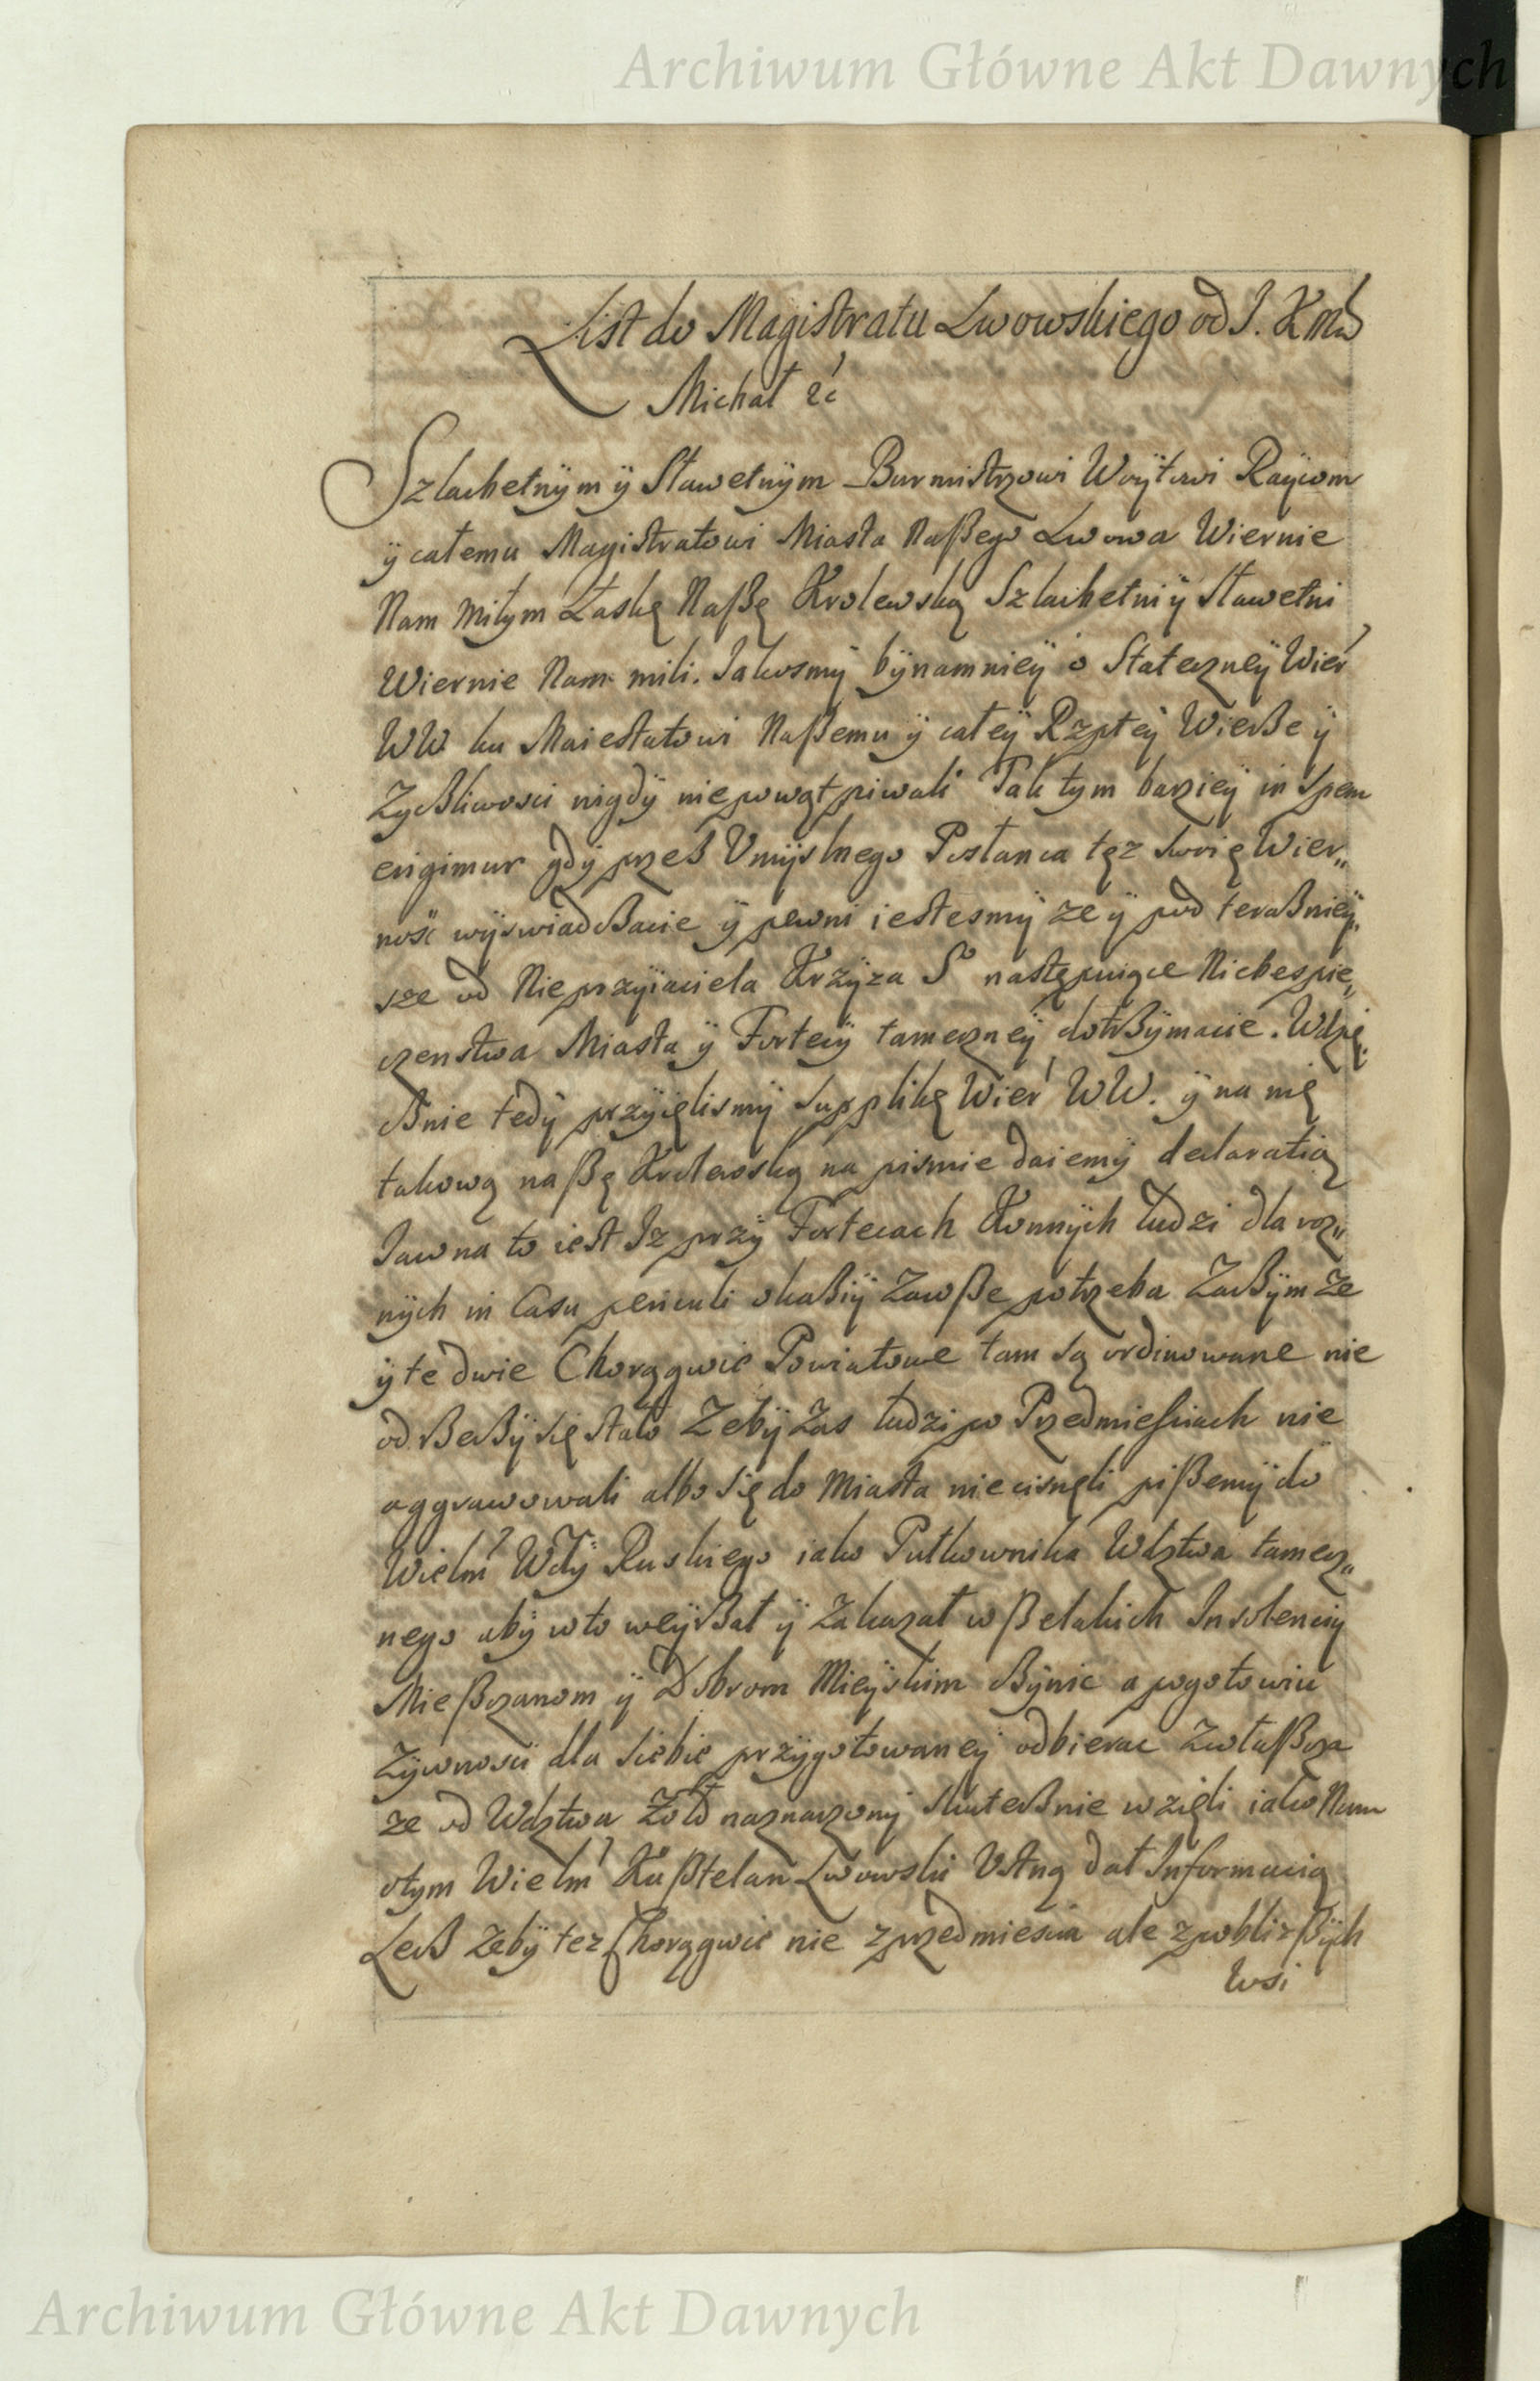 Archiwum Główne Akt Dawnych
List do Magistratu Lwowskiego od J. K Mci
Michał &c
Szlachetnÿm ÿ Sławetnÿm Burmistrzowi Woÿtowi Raÿcom
ÿ całemu Magistratowi Miasta Naßego Lwowa Wiernie
Nam miłym Łaskę Naßę Krolewską Szlachetni ÿ Sławetni
Wiernie Nam mili. Jakosmÿ bÿnamnieÿ o Stateczneÿ Wier
WW ku Maiestatowi Naßemu ÿ całeÿ Rzpteÿ Wierze ÿ
Zyczliwosci nigdÿ niepowątpiwali Tak tym barzieÿ in spem
erigimur gdÿ przez Vmÿslnego Posłanca tęz swoię Wier„
nosc wÿswiadczacie ÿ pewni iestesmÿ ze ÿ pod terazniey„
sze od Nieprzyiaciela Krzÿza S następuiące Niebespie„
czenstwa Miasta ÿ Fortecÿ tameczneÿ dotrzÿmacie. Wdzię„
cznie tedÿ przÿięlismÿ supplikę Wier WW. ÿ na nię
takową naßę Krolewską na pismie daiemÿ declaratią
Jawna to iest Iz przÿ Fortecach Konnÿch ludzi dla roz„
nÿch in Casu periculi okaziÿ zawße potrzeba Zaczÿm ze
ÿ te dwie Chorągwie Powiatowe tam są ordinowane nie
od Rzeczÿ się stało Zebÿ zas ludzi po Przedmiesciach nie
aggrawowali albo się do Miasta niecisnęli pißemÿ do
Wielm Wdÿ Ruskiego iako Pułkownika Wdztwa tamecz„
nego abÿ w to weÿrzał ÿ zakazał wßelakich Insolenciÿ
Mießczanom ÿ Dobrom Mieÿskim czÿnic a pogotowiu
Zÿwnosci dla siebie przÿgotowaneÿ odbierac zwłaßcza
ze od Wdztwa Zołd naznaczonÿ skutecznie wzięli iako Nam
otym Wielm Kaßtelan Lwowski Vstną dał Informacią
Lecz zebÿ tez Chorągwie nie zprzedmiescia ale zpoblizßÿch
wsi
Archiwum Główne Akt Dawnych